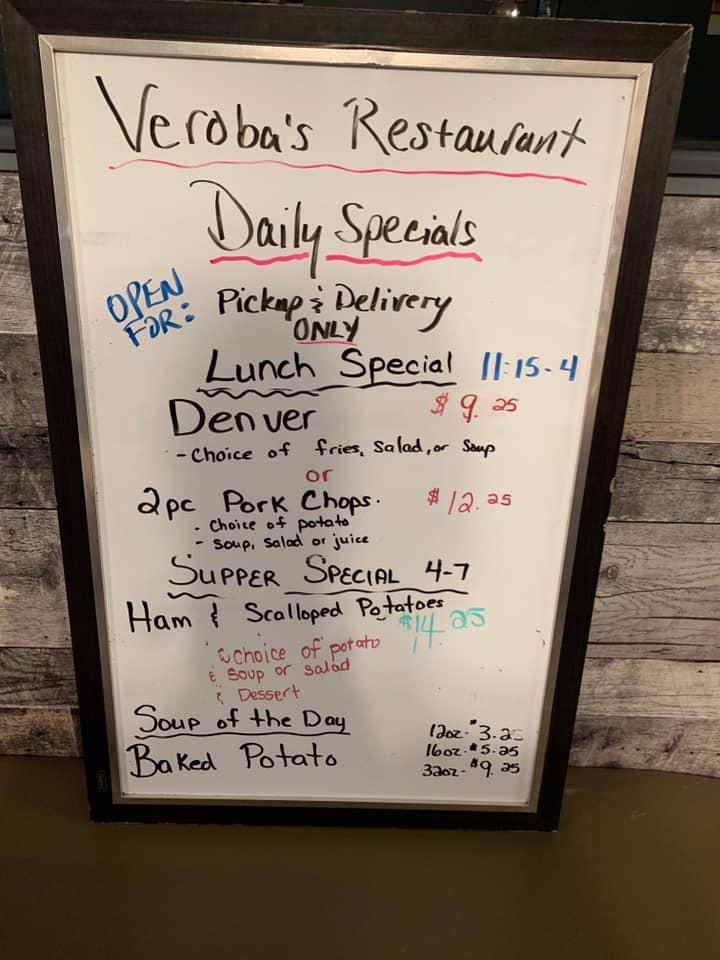 Veroba's Restaurant
Daily Specials
OPEN FOR: Pickup & Delivery
ONLY
Lunch Special 11:15-4
Denver $9.25
- Choice of fries, Salad, or Soup
or
2pc Pork Chops. $12.25
- Choice of potato
- Soup, Salad or juice
SUPPER SPECIAL 4-7
Ham & Scalloped Potatoes
$14.25
w choice of potato
& soup or salad
& Dessert
Soup of the Day 12oz- $3.25
16oz- $5.25
Baked Potato 32oz- $9.25